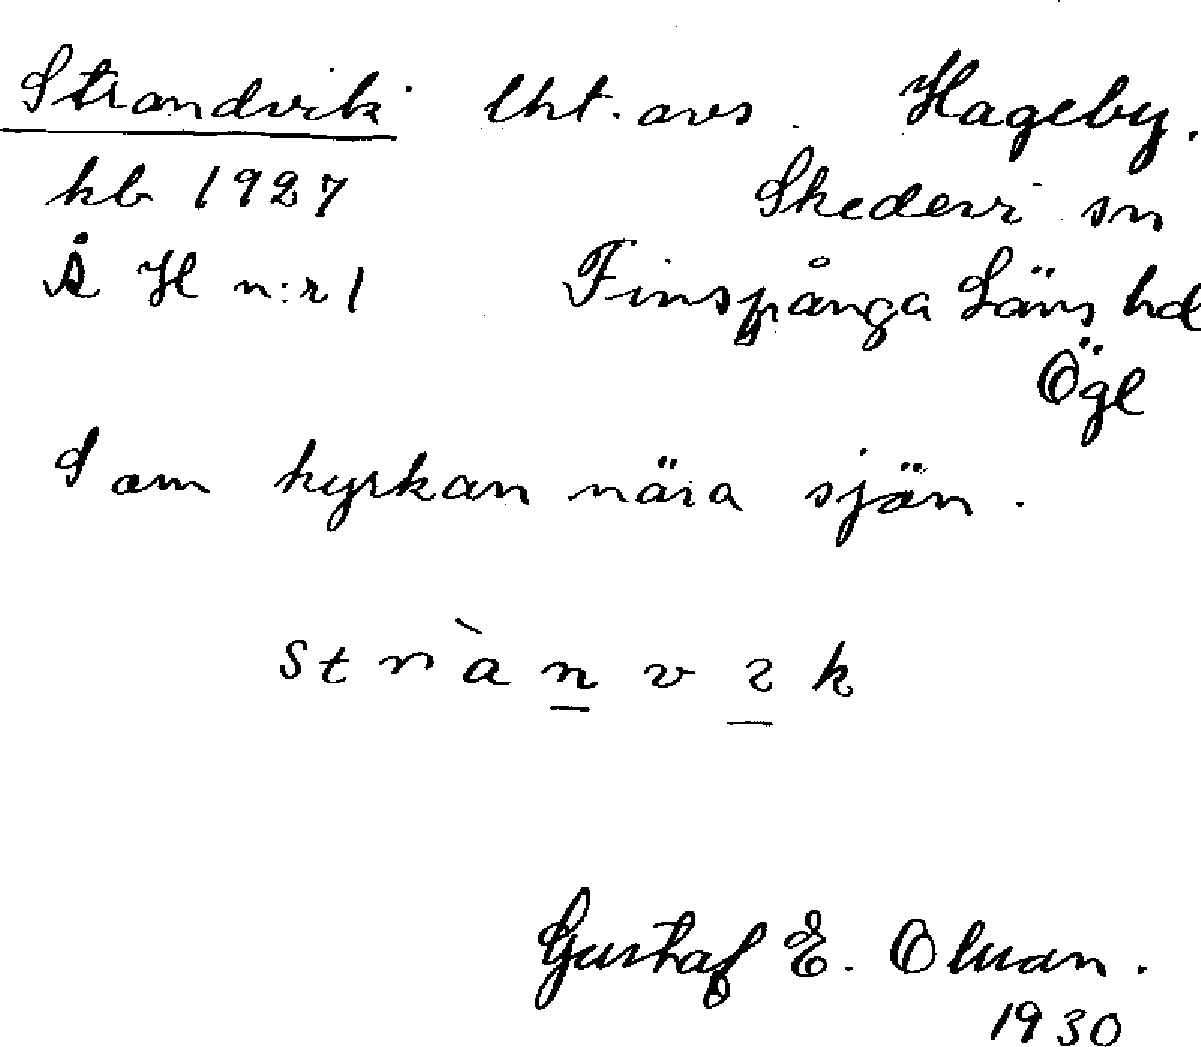 Strandvik lht. avs. Hageby.
kb 1927 Skedevi sn
Å H n:r 1 Finspånga Läns hd
Ögl
S om kyrkan nära sjön.
s t r à n v ı k
Gustaf E. Olsson.
1930